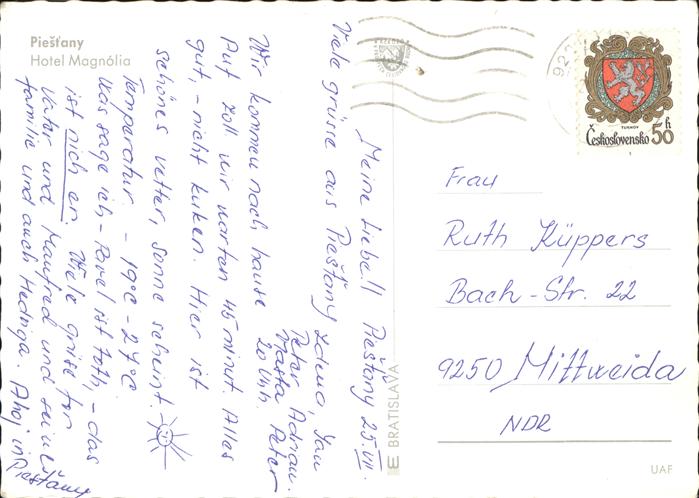 Piešťany
Hotel Magnólia
Meine Liebe!! Piešťany 25.VII.
Viele grüsse aus Piešťany Zdena, Jan
Peter Adrian.
Vlasta Peter
Wir kommen nach hause 20 Uh.
Auf zoll wir warten 45 minut. Alles
gut, - nicht kuken. Hier ist
schönes vetter, sonne scheint.
Temperatur. - 19°C - 27°C.
Was sage ich, - Pavel ist toth, - das
ist nich er. Viele grüse for
Vater und Manfred und seine
familie und auch Hedviga. Ahoj in
Piešťany
E BRATISLAVA
TURNOV
Československo 50 h
Frau
Ruth Küppers
Bach-Str. 22
9250 Mittweida
NDR
UAF